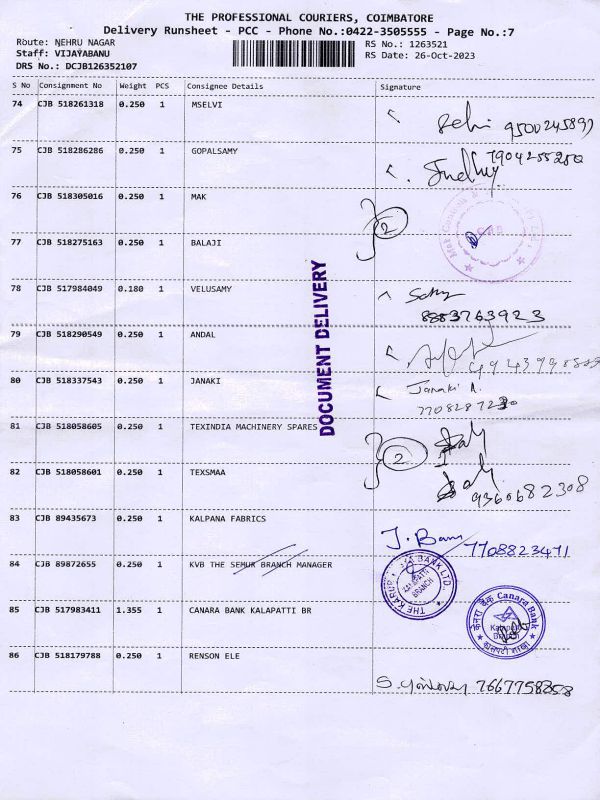 THE PROFESSIONAL COURIERS, COIMBATORE
Delivery Runsheet - PCC - Phone No.:0422-3505555 - Page No.:7
Route: NEHRU NAGAR
RS No.: 1263521
Staff: VIJAYABANU
RS Date: 26-Oct-2023
DRS No.: DCJB126352107
S No Consignment No Weight PCS Consignee Details Signature
74 CJB 518261318 0.250 1 MSELVI
75 CJB 518286286 0.250 1 GOPALSAMY
7904255250
76 CJB 518305016 0.250 1 MAK
2
77 CJB 518275163 0.250 1 BALAJI
78 CJB 517984049 0.180 1 VELUSAMY
8883763923
79 CJB 518290549 0.250 1 ANDAL
80 CJB 518337543 0.250 1 JANAKI
Janaki A.
DOCUMENT DELIVERY
81 CJB 518058605 0.250 1 TEXINDIA MACHINERY SPARES
2
82 CJB 518058601 0.250 1 TEXSMAA
9360682308
83 CJB 89435673 0.250 1 KALPANA FABRICS
J. Banu
7708823471
84 CJB 89872655 0.250 1 KVB THE SEMUR BRANCH MANAGER
THE KARUR BANK LTD.
BRANCH
85 CJB 517983411 1.355 1 CANARA BANK KALAPATTI BR
केनरा बैंक Canara Bank
Kalapatti
Branch
86 CJB 518179788 0.250 1 RENSON ELE